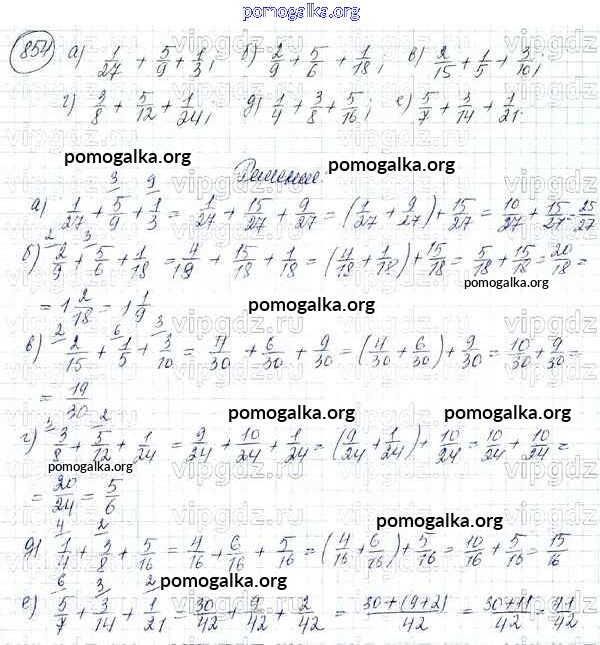 pomogalka.org
854 а) 1/27 + 5/9 + 1/3; б) 2/9 + 5/6 + 1/18; в) 2/15 + 1/5 + 3/10;
г) 3/8 + 5/12 + 1/24; д) 1/4 + 3/8 + 5/16; е) 5/7 + 3/14 + 1/21.
pomogalka.org pomogalka.org
Решение.
3 9
а) 1/27 + 5/9 + 1/3 = 1/27 + 15/27 + 9/27 = (1/27 + 9/27) + 15/27 = 10/27 + 15/27 = 25/27
2 3
б) 2/9 + 5/6 + 1/18 = 4/18 + 15/18 + 1/18 = (4/18 + 1/18) + 15/18 = 5/18 + 15/18 = 20/18 =
pomogalka.org
= 1 2/18 = 1 1/9
pomogalka.org
2 6 3
в) 2/15 + 1/5 + 3/10 = 4/30 + 6/30 + 9/30 = (4/30 + 6/30) + 9/30 = 10/30 + 9/30 =
= 19/30
pomogalka.org pomogalka.org
3 2
г) 3/8 + 5/12 + 1/24 = 9/24 + 10/24 + 1/24 = (9/24 + 1/24) + 10/24 = 10/24 + 10/24 =
pomogalka.org
= 20/24 = 5/6
pomogalka.org
4 2
д) 1/4 + 3/8 + 5/16 = 4/16 + 6/16 + 5/16 = (4/16 + 6/16) + 5/16 = 10/16 + 5/16 = 15/16
pomogalka.org
6 3 2
е) 5/7 + 3/14 + 1/21 = 30/42 + 9/42 + 2/42 = 30+(9+2)/42 = 30+11/42 = 41/42
pomogalka.org
vipgdz.ru